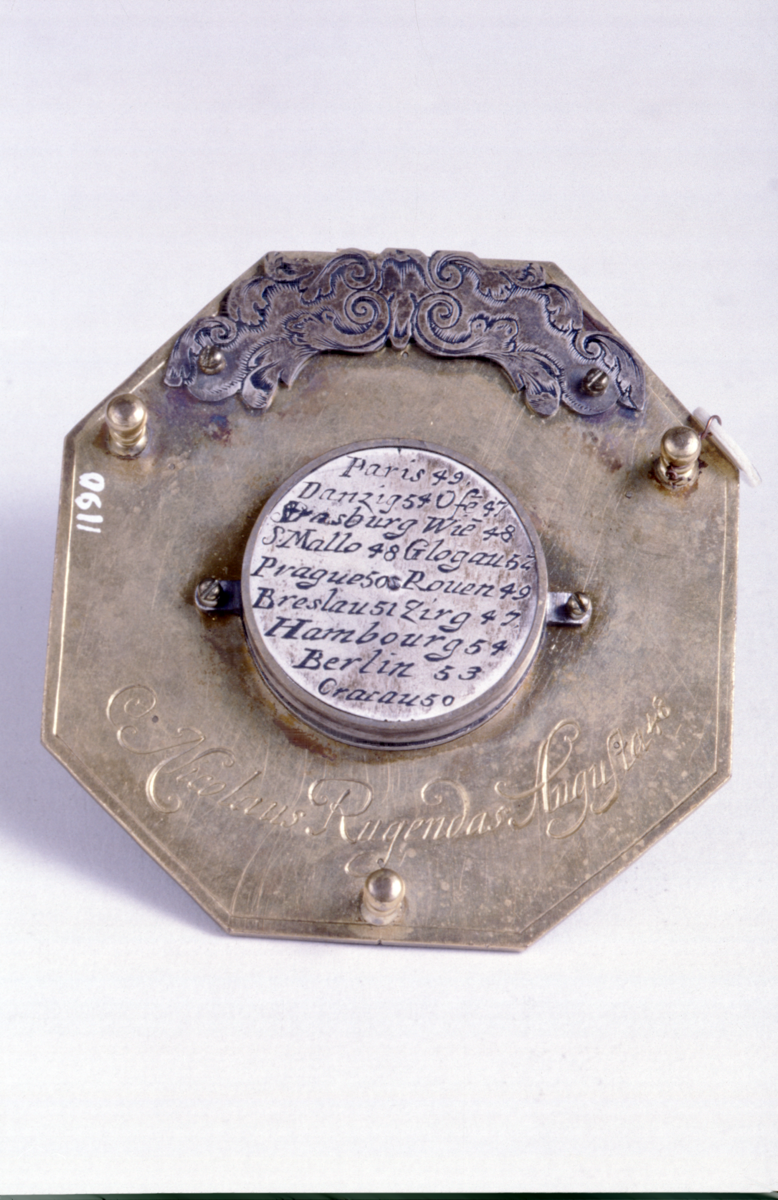 Paris 49
Danzig 54 Ofe 47
Strasburg Wie 48
S. Mallo 48 Glogau 52
Prague 50 Rouen 49
Breslau 51 Zirg 47
Hambourg 54
Berlin 53
Cracau 50
Nicolaus Rugendas Augustan9
0611